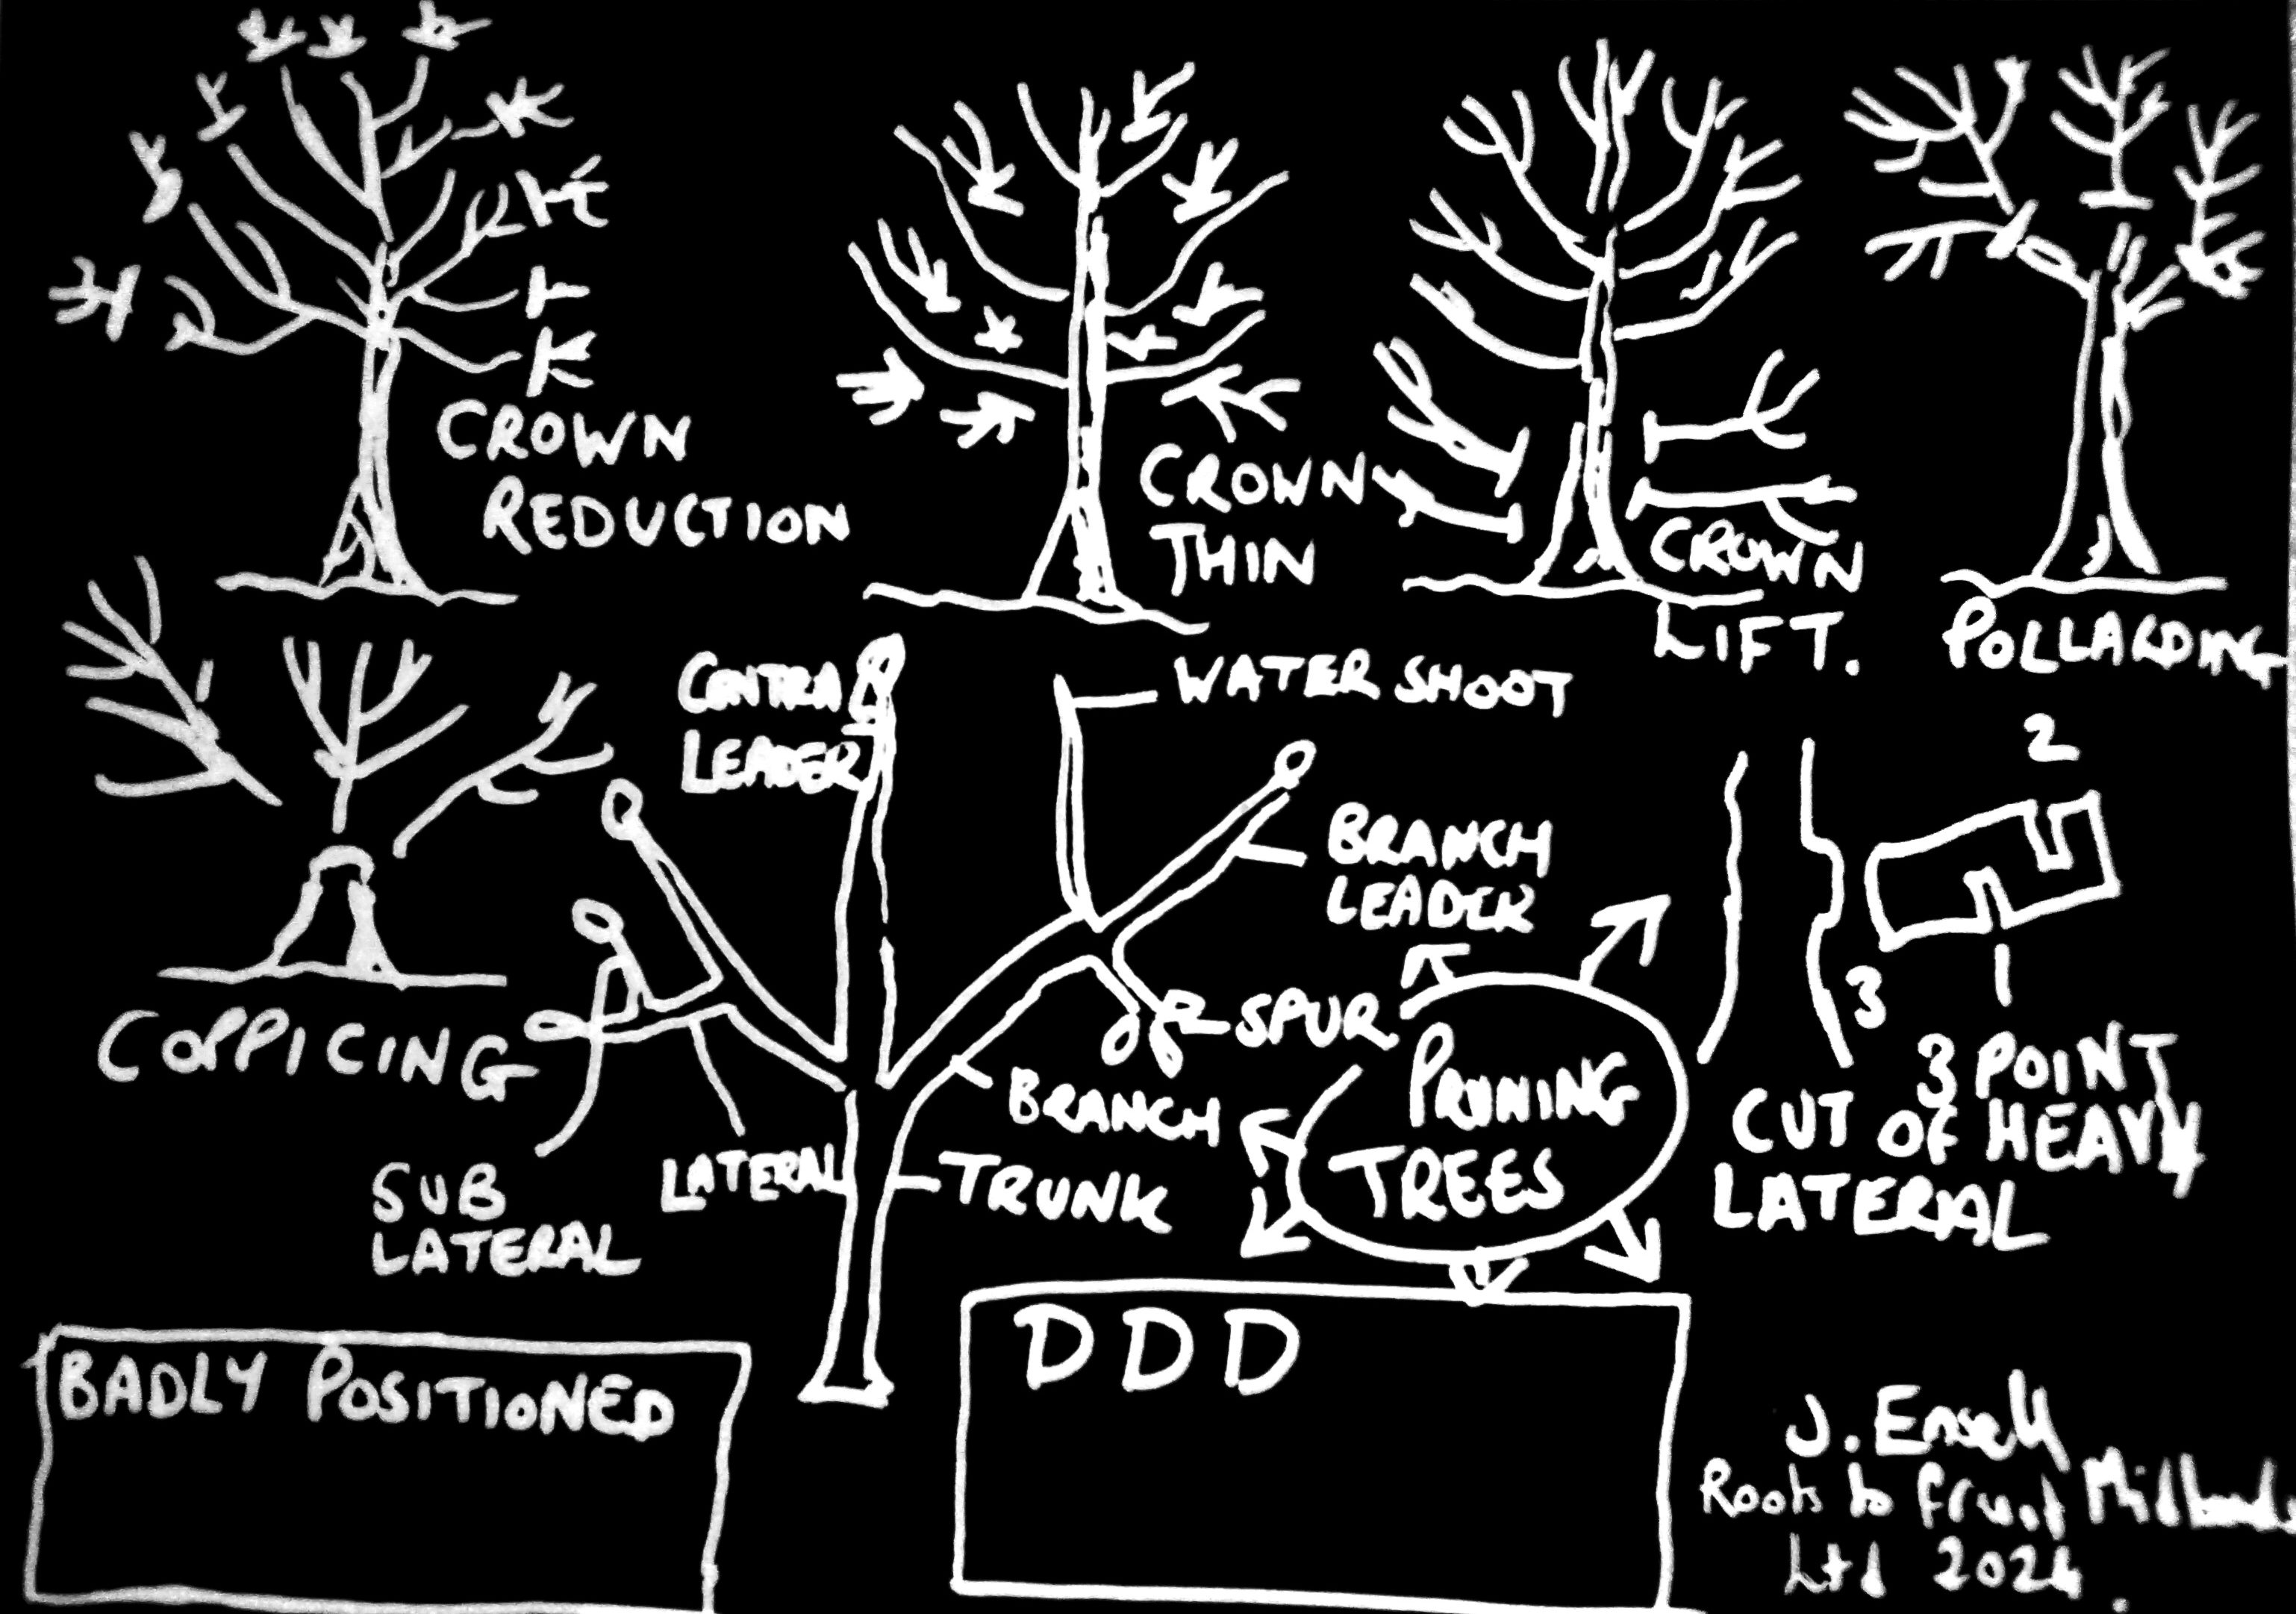 CROWN
REDUCTION
CROWN
THIN
CROWN
LIFT.
POLLARDING
COPPICING
CENTRAL
LEADER
WATER SHOOT
BRANCH
LEADER
SPUR
BRANCH
TRUNK
LATERAL
SUB
LATERAL
PRUNING
TREES
2
3
1
3 POINT
CUT OF HEAVY
LATERIAL
BADLY POSITIONED
D D D
J.
Roots to Fruit Midlands
Ltd 2024.